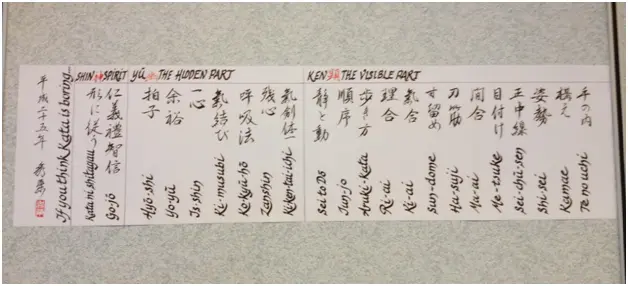 KEN 顕 THE VISIBLE PART
手の内 Te no uchi
構え Kamae
姿勢 Shi-sei
正中線 Sei-chū-sen
目付け Me-tsuke
間合 Ma-ai
刃筋 Ha-suji
寸留め Sun-dome
氣合 Ki-ai
理合 Ri-ai
歩き方 Aruki-Kata
順序 Jun-jo
静と動 Sei to Dō
YŪ THE HIDDEN PART
氣剣体一 Ki-ken-tai-ichi
残心 Zanshin
呼吸法 Ko-kyū-hō
氣結び Ki-musubi
一心 Is-shin
余裕 Yo-yū
拍子 Hyō-shi
SHIN 神 SPIRIT
仁義禮智信 Go-jō
形に従う Kata ni shitagau
If you think Kata is boring...
平成二十五年